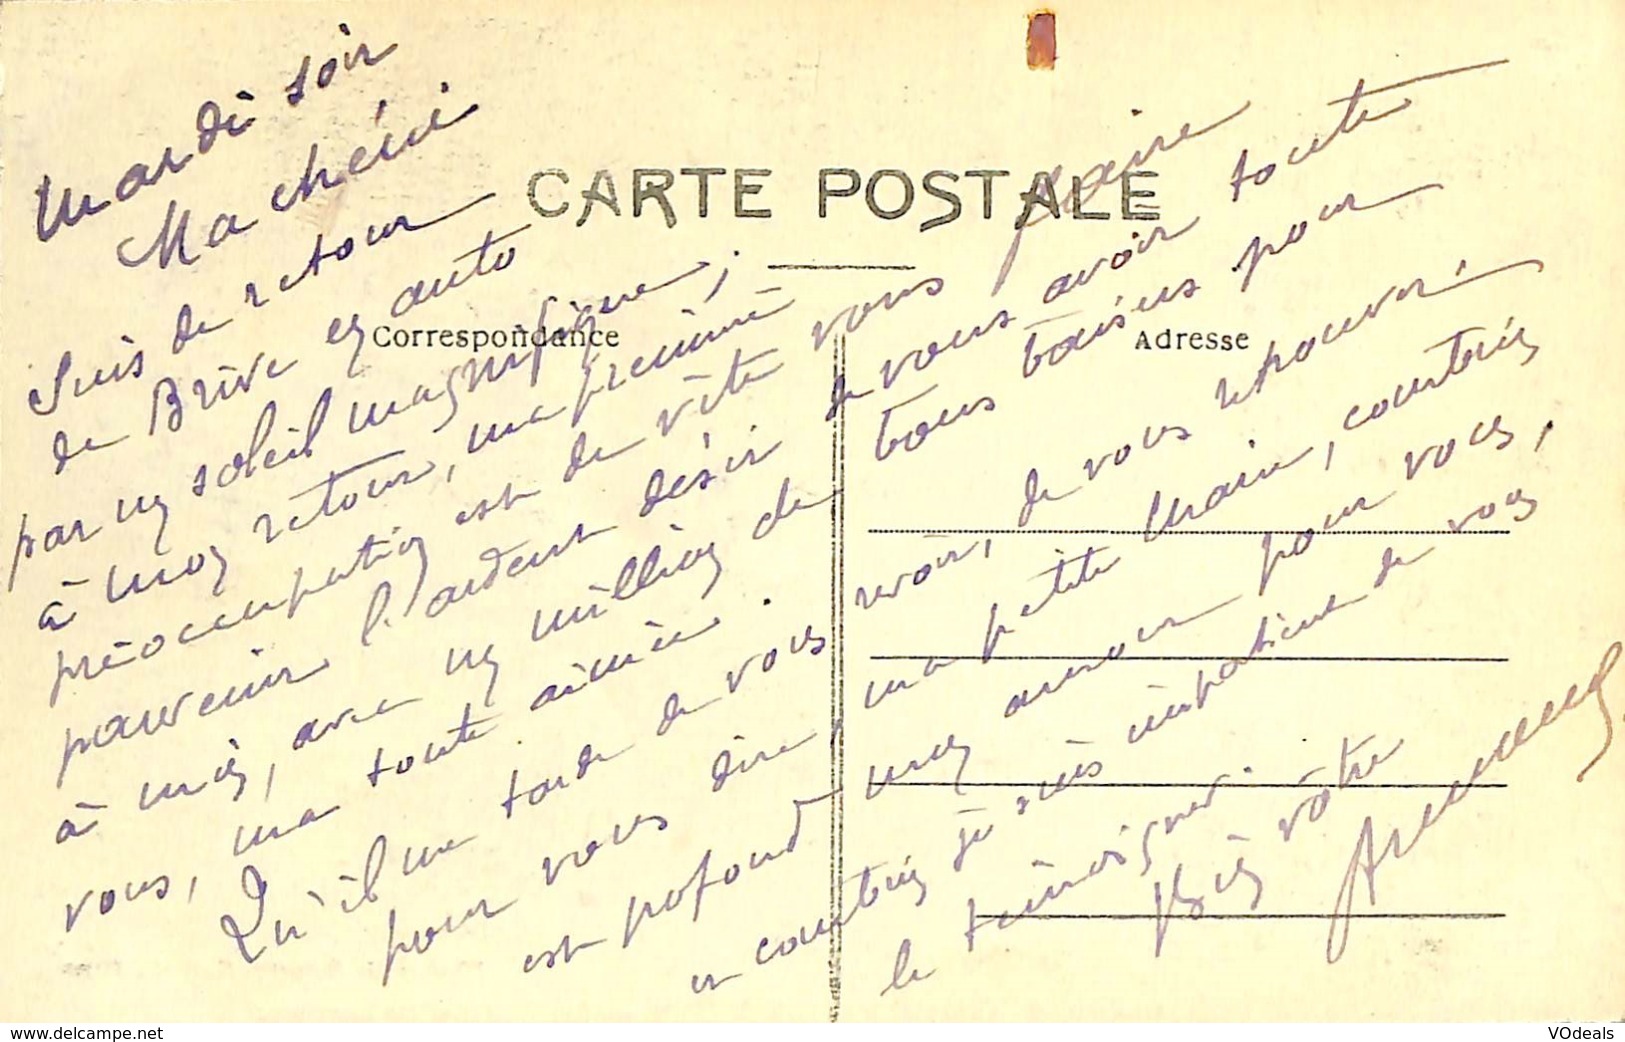 CARTE POSTALE
Correspondance
Adresse
Mardi soir
Ma chérie
Suis de retour
de Brive en auto
par un soleil magnifique ;
à mon retour, ma première
préoccupation est de vite vous faire
parvenir l'ardent désir de vous avoir toute
à moi, avec un million de bons baisers pour
vous, ma toute aimée.
Qu'il me tarde de vous revoir, de vous retrouver
pour vous dire, ma petite Maine, combien
est profond mon amour pour vous,
et combien je suis impatient de vous
le témoigner.
Bien votre
VOdeals
www.delcampe.net